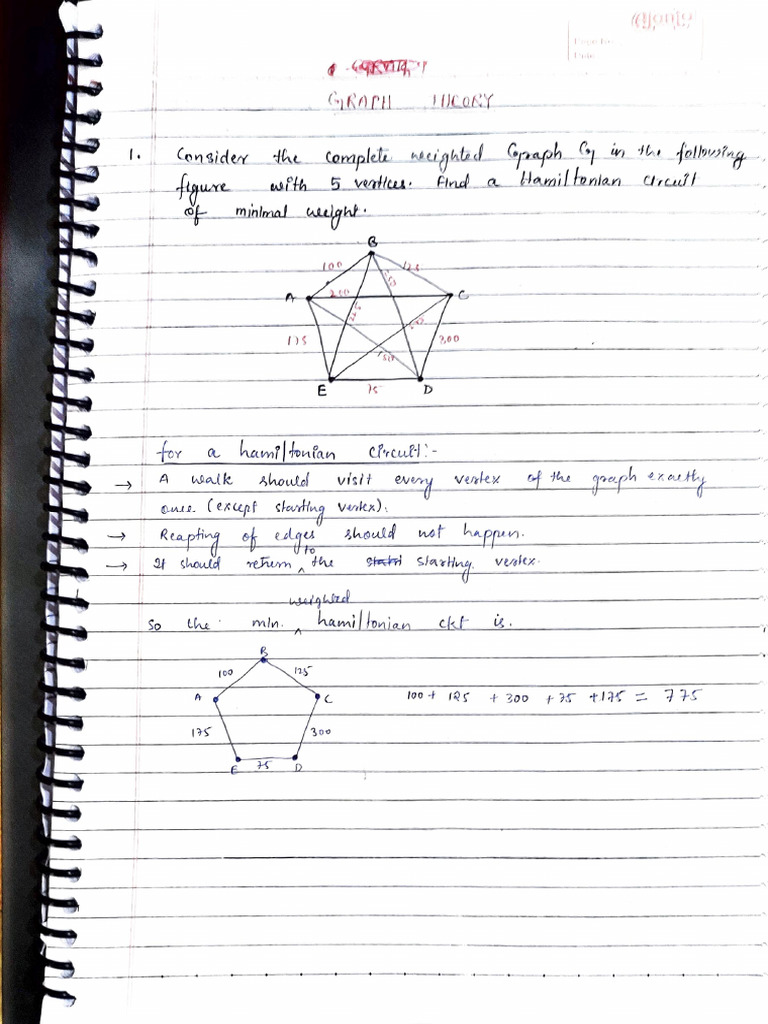 GRAPH THEORY
1. Consider the complete weighted Graph G in the following
figure with 5 vertices. Find a Hamiltonian circuit
of minimal weight.
B
100 125
A 200 C
175 300
E 75 D
for a hamiltonian circuit:-
→ A walk should visit every vertex of the graph exactly
once (except starting vertex).
→ Reapting of edges should not happen.
→ It should return to the starting vertex.
so the min. weighted hamiltonian ckt is.
B
100 125
A C
100 + 125 + 300 + 75 + 175 = 775
175 300
E 75 D